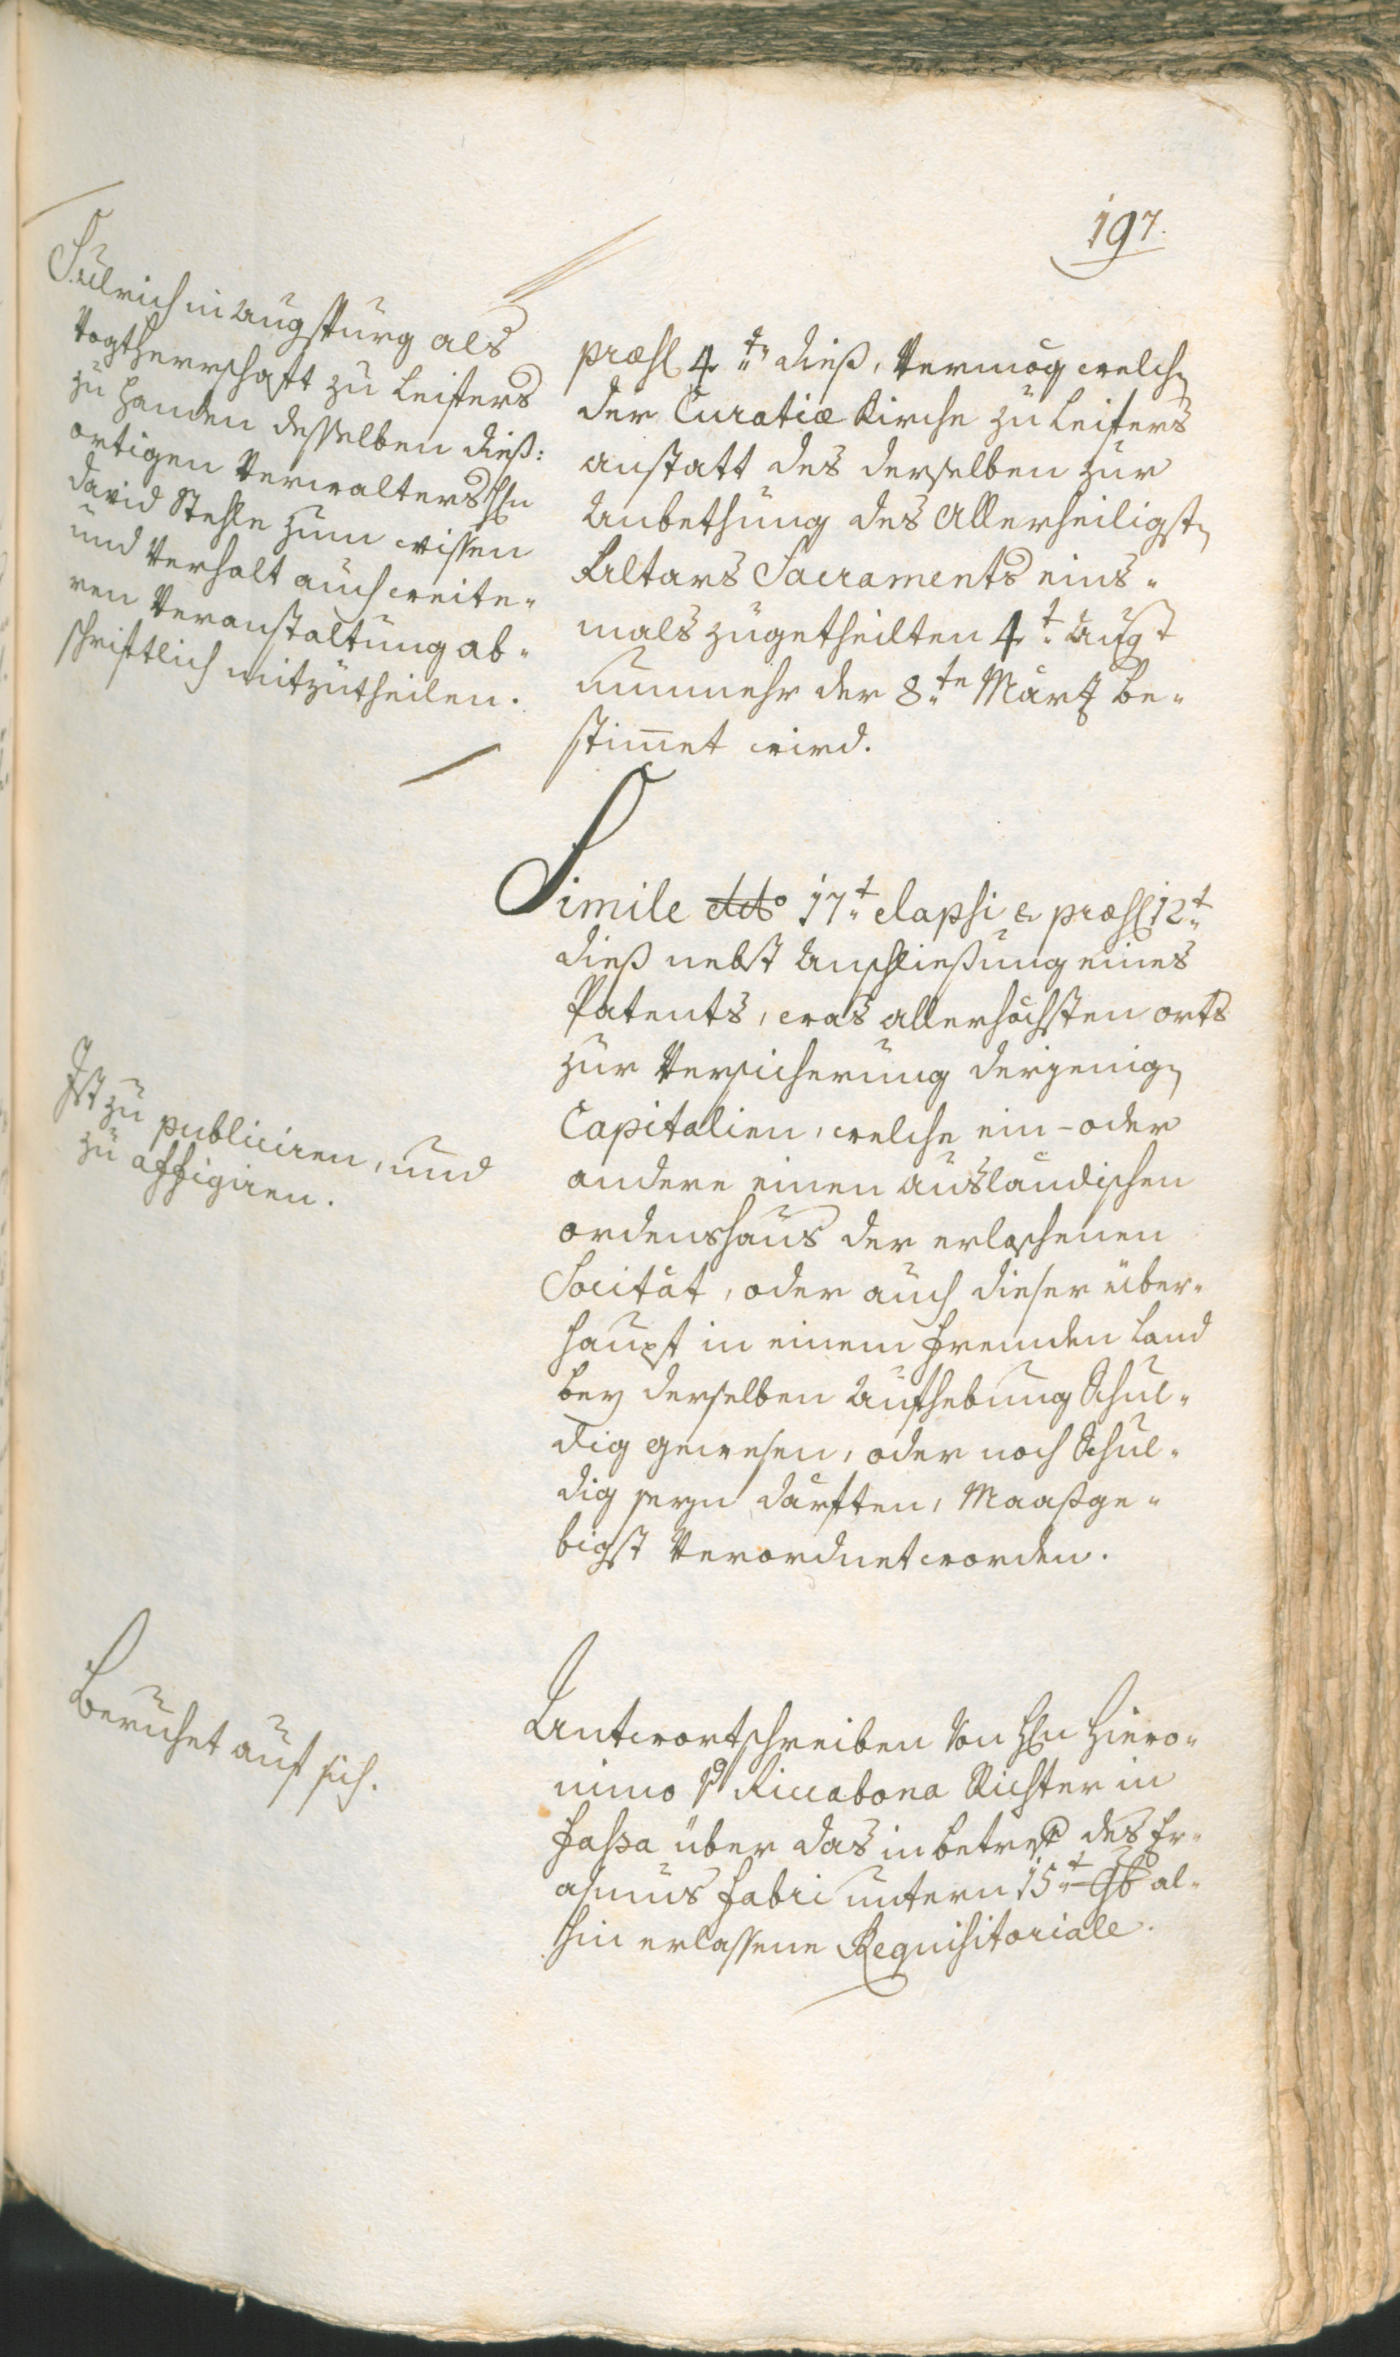 197.
S: Ulrich in Augspurg als
Vogtherrschaft zu Leifers
zu Handen desselben dieß:
ortigen Verwalters Hn
David Stehle zum wissen
und Verhalt auch weite-
ren Veranstaltung ab-
schriftlich mitzutheilen.
præs 4ten dieß, Vermög welchen
der Curatiæ Kirche zu Leifers
anstatt des derselben zur
Anbethung des Allerheiligsten
Altars Sacraments eins-
mals zugetheilten 4t Augt
nunmehr der 8te Märtz be-
stim̅et wird.
Simile ddo 17t elapsi & præs 12t
dieß nebst Anschließung eines
Patents, was allerhöchsten orts
zur Versicherung derjenigen
Capitalien, welche ein- oder
andere einen ausländischen
ordenshaus der erloschenen
Societät, oder auch dieser über-
haupt in einem fremden Land
bey derselben Aufhebung Schul-
dig gewesen, oder noch Schul-
dig seyn därften, Maaßge-
bigst Verordnet worden.
Ist zu publiciren, und
zu affigiren.
Antwortschreiben Von Hn Hiero-
nimo v Riccabona Richter in
Faßa über das in betreff des Er-
asmus Fabri untern 15t 9b al-
hin erlassene Requisitoriale.
Beruhet auf sich.